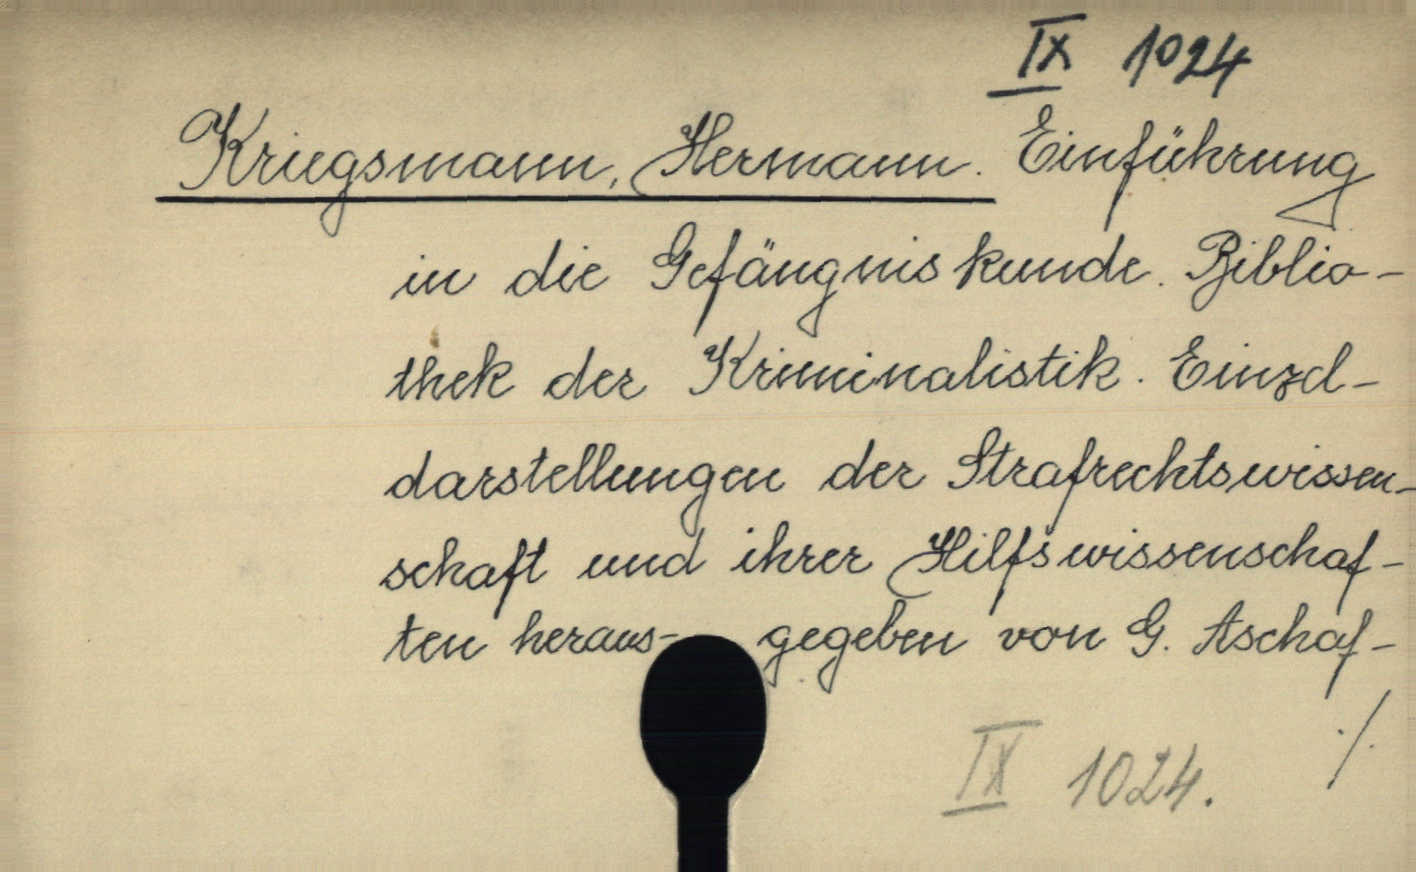 IX 1024
Kriegsmann, Hermann. Einführung
in die Gefängniskunde. Biblio-
thek der Kriminalistik. Einzel-
darstellungen der Strafrechtswissen-
schaft und ihrer Hilfswissenschaf-
ten heraus- gegeben von G. Aschaf-
./.
IX 1024.